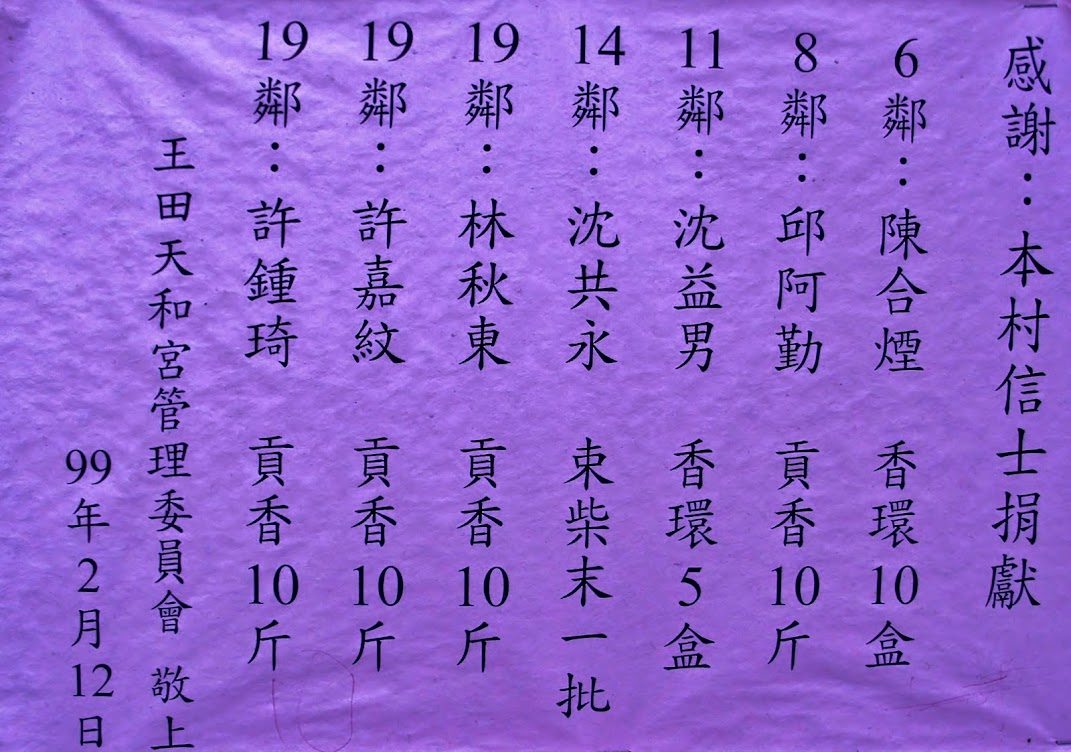 感謝：本村信士捐獻
6鄰：陳合煙 香環10盒
8鄰：邱阿勤 貢香10斤
11鄰：沈益男 香環5盒
14鄰：沈共永 束柴末一批
19鄰：林秋東 貢香10斤
19鄰：許嘉紋 貢香10斤
19鄰：許鍾琦 貢香10斤
王田天和宮管理委員會 敬上
99年2月12日